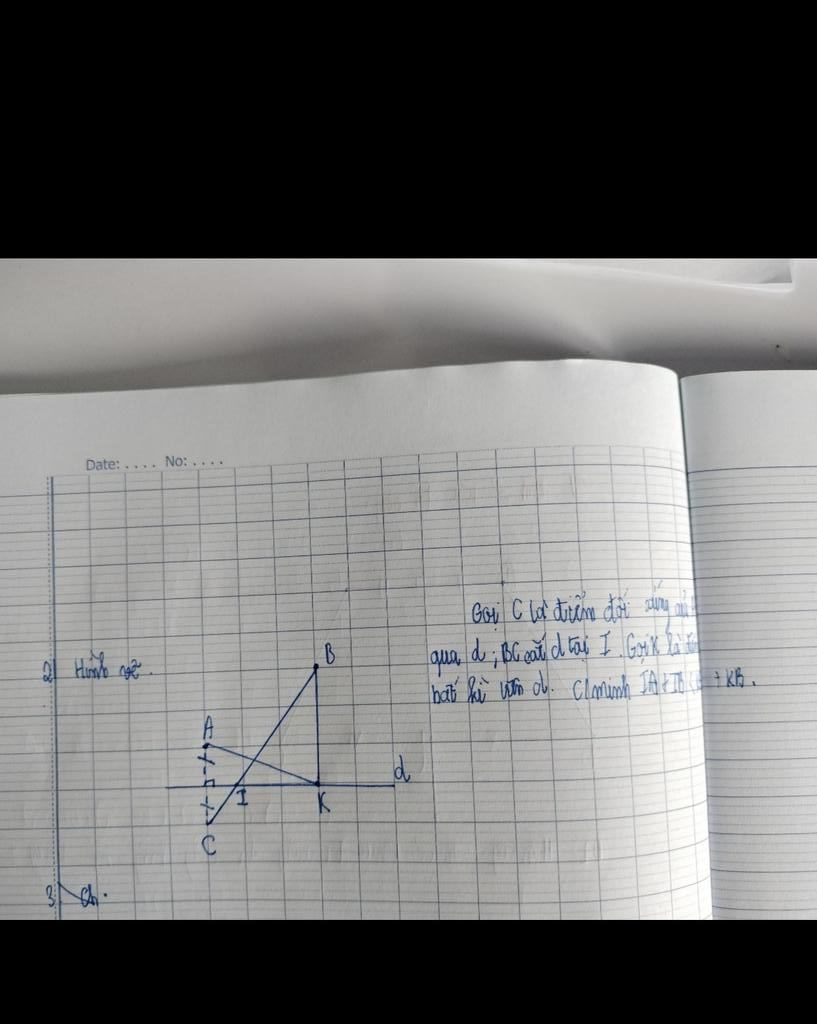 Date: .... No: ....
Gọi C là điểm đối xứng của
qua d ; BC cắt d tại I . Gọi K là
2 Hình vẽ .
bất kì trên d. C/minh IA + IB < + KB .
B
A
d
I
K
C
3